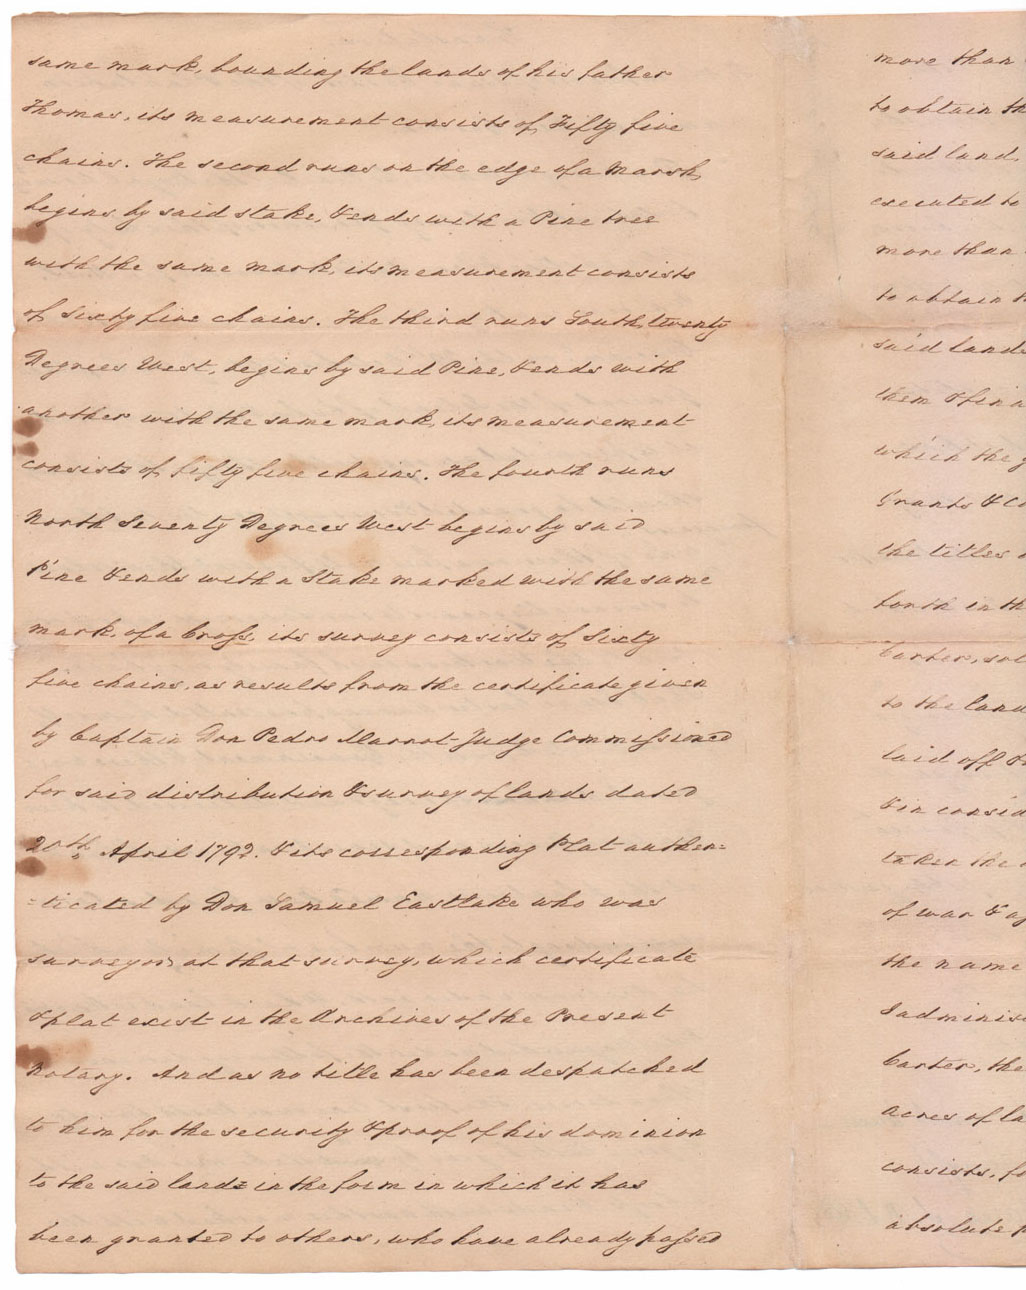 same mark, bounding the lands of his father
Thomas, its measurement consists of Fifty five
chains. The second runs on the edge of a Marsh,
begins by said stake, & ends with a Pine tree
with the same mark, its measurement consists
of Sixty five chains. The third runs South, twenty
Degrees West, begins by said Pine, & ends with
another with the same mark, its measurement
consists of fifty five chains. The fourth runs
North Seventy Degrees West begins by said
Pine & ends with a Stake marked with the same
mark, of a Cross, its survey consists of Sixty
five chains, as results from the certificate given
by Captain Don Pedro Marrot Judge Commissioned
for said distribution & survey of lands dated
20th April 1792. & its corresponding Plat authen=
=ticated by Don Samuel Eastlake who was
surveyor at that survey, which certificate
& plat exist in the Archives of the Present
Notary. And as no title has been despatched
to him for the security & proof of his dominion
to the said lands in the form in which it has
been granted to others, who have already passed
more than
to obtain th
said land,
executed to
more than
to obtain t
said lands
them & fin
which the g
Grants & Co
the titles
forth in th
Carter, sol
to the land
laid off &
& in consid
taken the
of war & ag
the name
I adminis
Carter, the
acres of la
consists, fo
absolute p